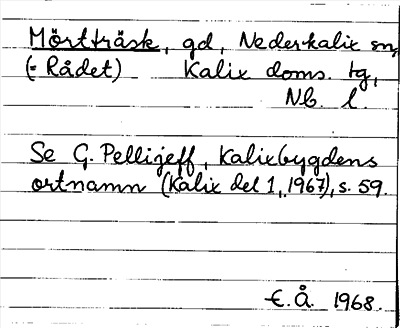 Mörtträsk, gd, Nederkalix sn,
(= Rådet) Kalix doms. tg,
Nb. l.
Se G. Pellijeff, Kalixbygdens
ortnamn (Kalix del 1, 1967), s. 59.
E.Å. 1968.